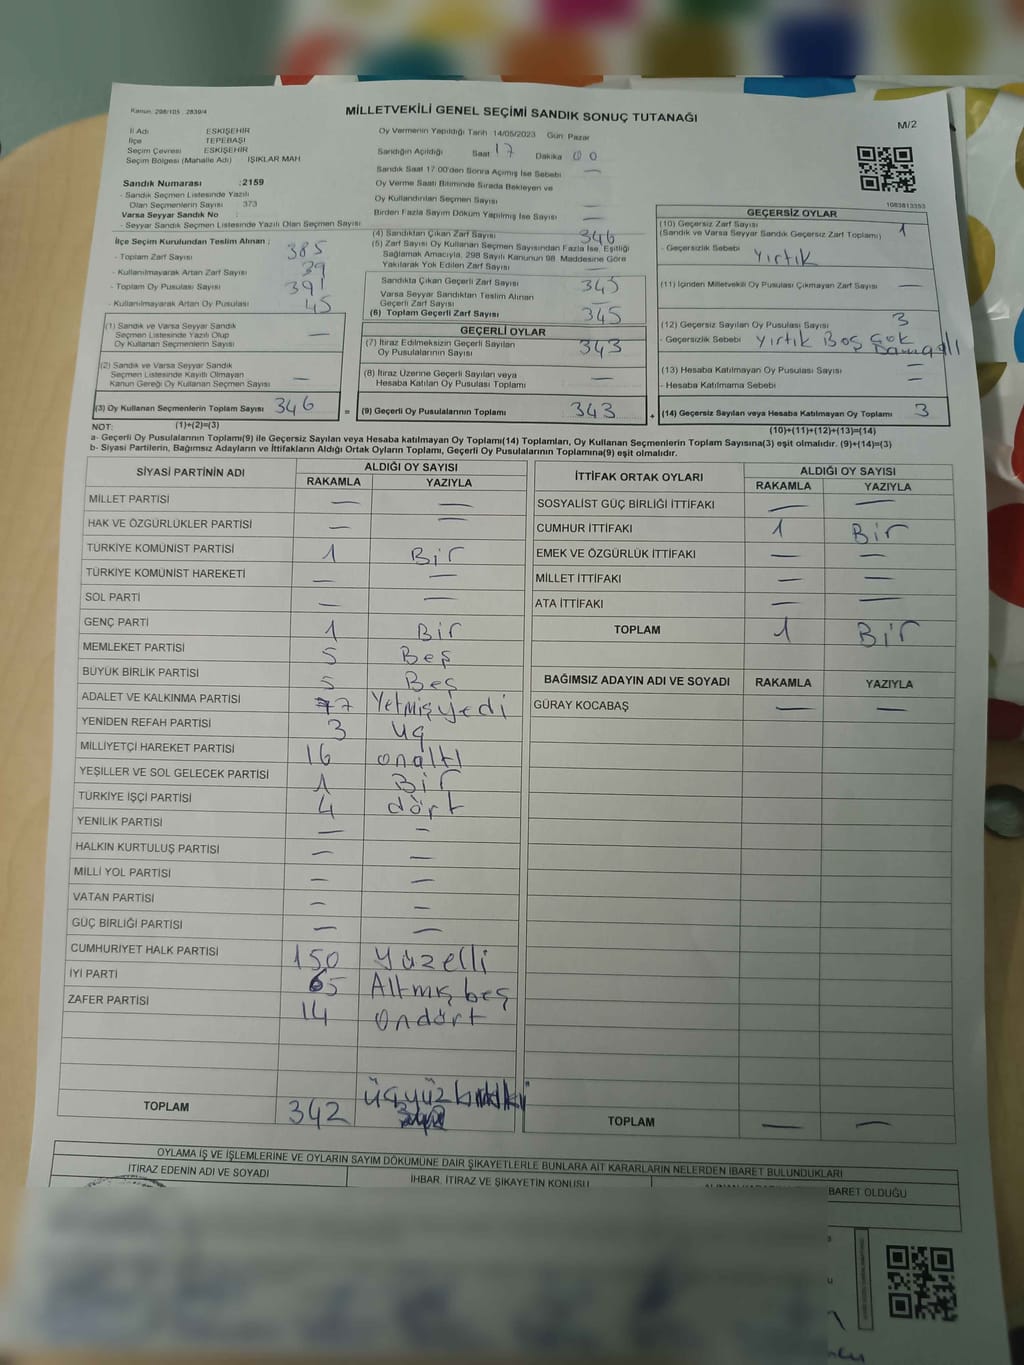 Kanun: 298/105 , 2839/4
MİLLETVEKİLİ GENEL SEÇİMİ SANDIK SONUÇ TUTANAĞI
M/2
İl Adı ESKİŞEHİR
İlçe TEPEBAŞI
Seçim Çevresi ESKİŞEHİR
Seçim Bölgesi (Mahalle Adı) IŞIKLAR MAH
Sandık Numarası :2159
- Sandık Seçmen Listesinde Yazılı
Olan Seçmenlerin Sayısı 373
Varsa Seyyar Sandık No :
- Seyyar Sandık Seçmen Listesinde Yazılı Olan Seçmen Sayısı
İlçe Seçim Kurulundan Teslim Alınan ;
- Toplam Zarf Sayısı 385
- Kullanılmayarak Artan Zarf Sayısı 39
- Toplam Oy Pusulası Sayısı 391
- Kullanılmayarak Artan Oy Pusulası 45
(1) Sandık ve Varsa Seyyar Sandık
Seçmen Listesinde Yazılı Olup
Oy Kullanan Seçmenlerin Sayısı —
(2) Sandık ve Varsa Seyyar Sandık
Seçmen Listesinde Kayıtlı Olmayan
Kanun Gereği Oy Kullanan Seçmen Sayısı —
(3) Oy Kullanan Seçmenlerin Toplam Sayısı 346 =
(1)+(2)=(3)
Oy Vermenin Yapıldığı Tarih 14/05/2023 Gün: Pazar
Sandığın Açıldığı Saat 17 Dakika 00
Sandık Saat 17:00'den Sonra Açılmış İse Sebebi —
Oy Verme Saati Bitiminde Sırada Bekleyen ve
Oy Kullandırılan Seçmen Sayısı —
Birden Fazla Sayım Döküm Yapılmış İse Sayısı —
(4) Sandıktan Çıkan Zarf Sayısı 346
(5) Zarf Sayısı Oy Kullanan Seçmen Sayısından Fazla İse, Eşitliği
Sağlamak Amacıyla, 298 Sayılı Kanunun 98. Maddesine Göre
Yakılarak Yok Edilen Zarf Sayısı —
Sandıkta Çıkan Geçerli Zarf Sayısı 345
Varsa Seyyar Sandıktan Teslim Alınan
Geçerli Zarf Sayısı —
(6) Toplam Geçerli Zarf Sayısı 345
GEÇERLİ OYLAR
(7) İtiraz Edilmeksizin Geçerli Sayılan
Oy Pusulalarının Sayısı 343
(8) İtiraz Üzerine Geçerli Sayılan veya
Hesaba Katılan Oy Pusulası Toplamı —
(9) Geçerli Oy Pusulalarının Toplamı 343 +
1083813353
GEÇERSİZ OYLAR
(10) Geçersiz Zarf Sayısı
(Sandık ve Varsa Seyyar Sandık Geçersiz Zarf Toplamı) 1
- Geçersizlik Sebebi Yırtık
(11) İçinden Milletvekili Oy Pusulası Çıkmayan Zarf Sayısı —
(12) Geçersiz Sayılan Oy Pusulası Sayısı 3
- Geçersizlik Sebebi Yırtık Boş Çok
Damgalı
(13) Hesaba Katılmayan Oy Pusulası Sayısı —
- Hesaba Katılmama Sebebi —
(14) Geçersiz Sayılan veya Hesaba Katılmayan Oy Toplamı 3
(10)+(11)+(12)+(13)=(14)
NOT:
a- Geçerli Oy Pusulalarının Toplamı(9) ile Geçersiz Sayılan veya Hesaba katılmayan Oy Toplamı(14) Toplamları, Oy Kullanan Seçmenlerin Toplam Sayısına(3) eşit olmalıdır. (9)+(14)=(3)
b- Siyasi Partilerin, Bağımsız Adayların ve İttifakların Aldığı Ortak Oyların Toplamı, Geçerli Oy Pusulalarının Toplamına(9) eşit olmalıdır.
SİYASİ PARTİNİN ADI ALDIĞI OY SAYISI
RAKAMLA YAZIYLA
MİLLET PARTİSİ — —
HAK VE ÖZGÜRLÜKLER PARTİSİ — —
TÜRKİYE KOMÜNİST PARTİSİ 1 Bir
TÜRKİYE KOMÜNİST HAREKETİ — —
SOL PARTİ — —
GENÇ PARTİ 1 Bir
MEMLEKET PARTİSİ 5 Beş
BÜYÜK BİRLİK PARTİSİ 5 Beş
ADALET VE KALKINMA PARTİSİ 77 Yetmişyedi
YENİDEN REFAH PARTİSİ 3 üç
MİLLİYETÇİ HAREKET PARTİSİ 16 onaltı
YEŞİLLER VE SOL GELECEK PARTİSİ 1 Bir
TÜRKİYE İŞÇİ PARTİSİ 4 dört
YENİLİK PARTİSİ — —
HALKIN KURTULUŞ PARTİSİ — —
MİLLİ YOL PARTİSİ — —
VATAN PARTİSİ — —
GÜÇ BİRLİĞİ PARTİSİ — —
CUMHURİYET HALK PARTİSİ 150 Yüzelli
İYİ PARTİ 65 Altmış beş
ZAFER PARTİSİ 14 ondört
TOPLAM 342 üçyüz
İTTİFAK ORTAK OYLARI ALDIĞI OY SAYISI
RAKAMLA YAZIYLA
SOSYALİST GÜÇ BİRLİĞİ İTTİFAKI — —
CUMHUR İTTİFAKI 1 Bir
EMEK VE ÖZGÜRLÜK İTTİFAKI — —
MİLLET İTTİFAKI — —
ATA İTTİFAKI — —
TOPLAM 1 Bir
BAĞIMSIZ ADAYIN ADI VE SOYADI RAKAMLA YAZIYLA
GÜRAY KOCABAŞ — —
TOPLAM — —
OYLAMA İŞ VE İŞLEMLERİNE VE OYLARIN SAYIM DÖKÜMÜNE DAİR ŞİKAYETLERLE BUNLARA AİT KARARLARIN NELERDEN İBARET BULUNDUKLARI
İTİRAZ EDENİN ADI VE SOYADI
İHBAR, İTİRAZ VE ŞİKAYETİN KONUSU
BARET OLDUĞU